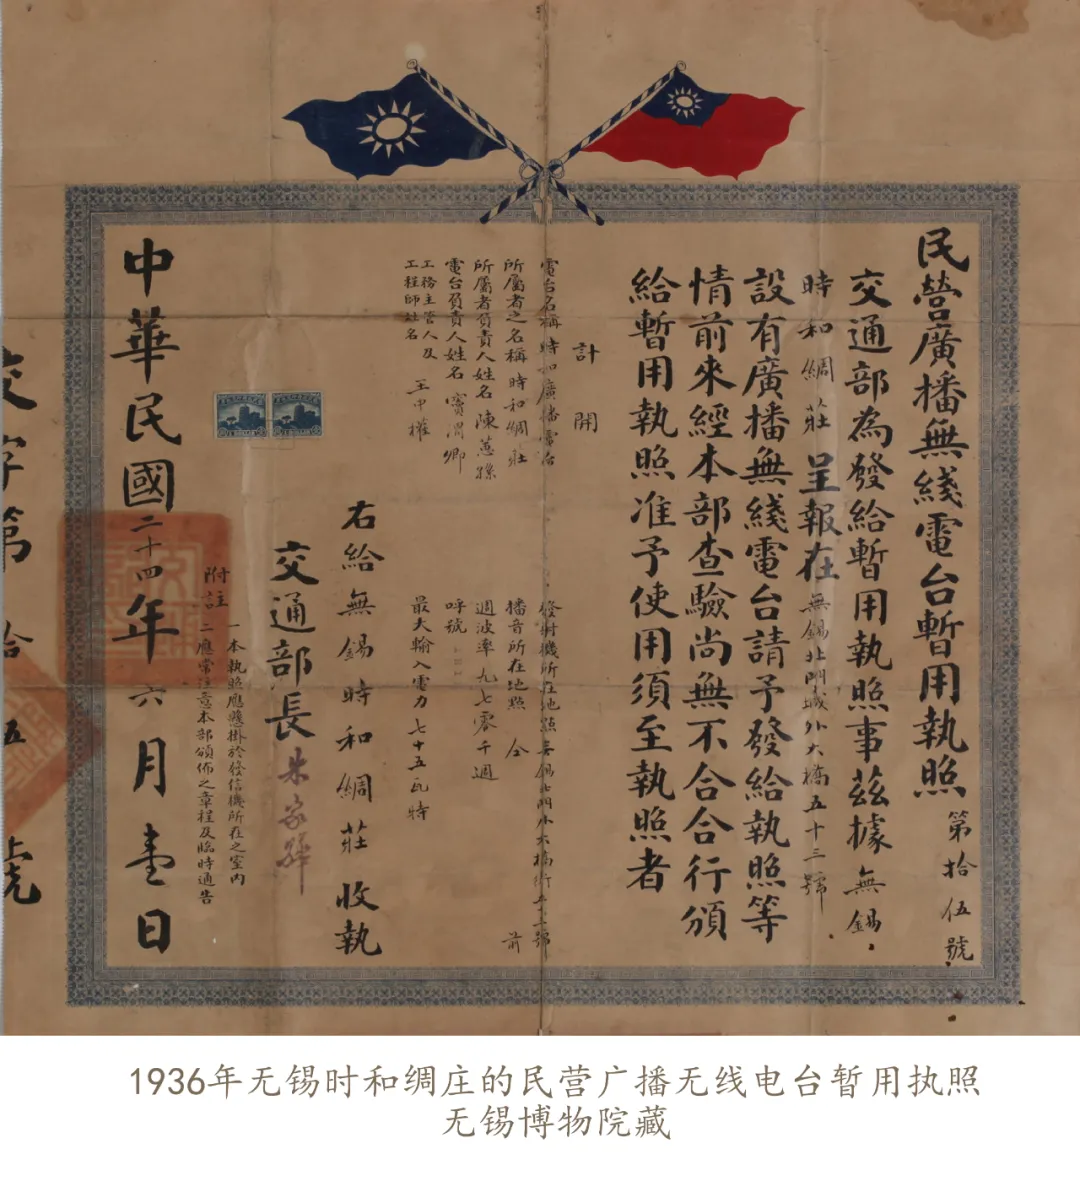 民營廣播無綫電台暫用執照 第拾伍號
交通部為發給暫用執照事茲據無錫
時和綢莊呈報在無錫北門城外大橋五十三號
設有廣播無綫電台請予發給執照等
情前來經本部查驗尚無不合合行頒
給暫用執照准予使用須至執照者
計開
電台名稱 時和廣播電台
發射機所在地點 無錫北門外大橋街五十三號
所屬者之名稱 時和綢莊
播音所在地點 仝前
所屬者負責人姓名 陳蕙蓀
週波率 九七零千週
電台負責人姓名 竇潤卿
呼號
工務主管人及
工程師姓名 王中權
最大輸入電力 七十五瓦特
右給無錫時和綢莊收執
交通部長 朱家驊
附註 一 本執照應懸掛於發信機所在之室內
二 應常注意本部頒佈之章程及臨時通告
中華民國二十四年六月壹日
交字第拾五號
1936年无锡时和绸庄的民营广播无线电台暂用执照
无锡博物院藏